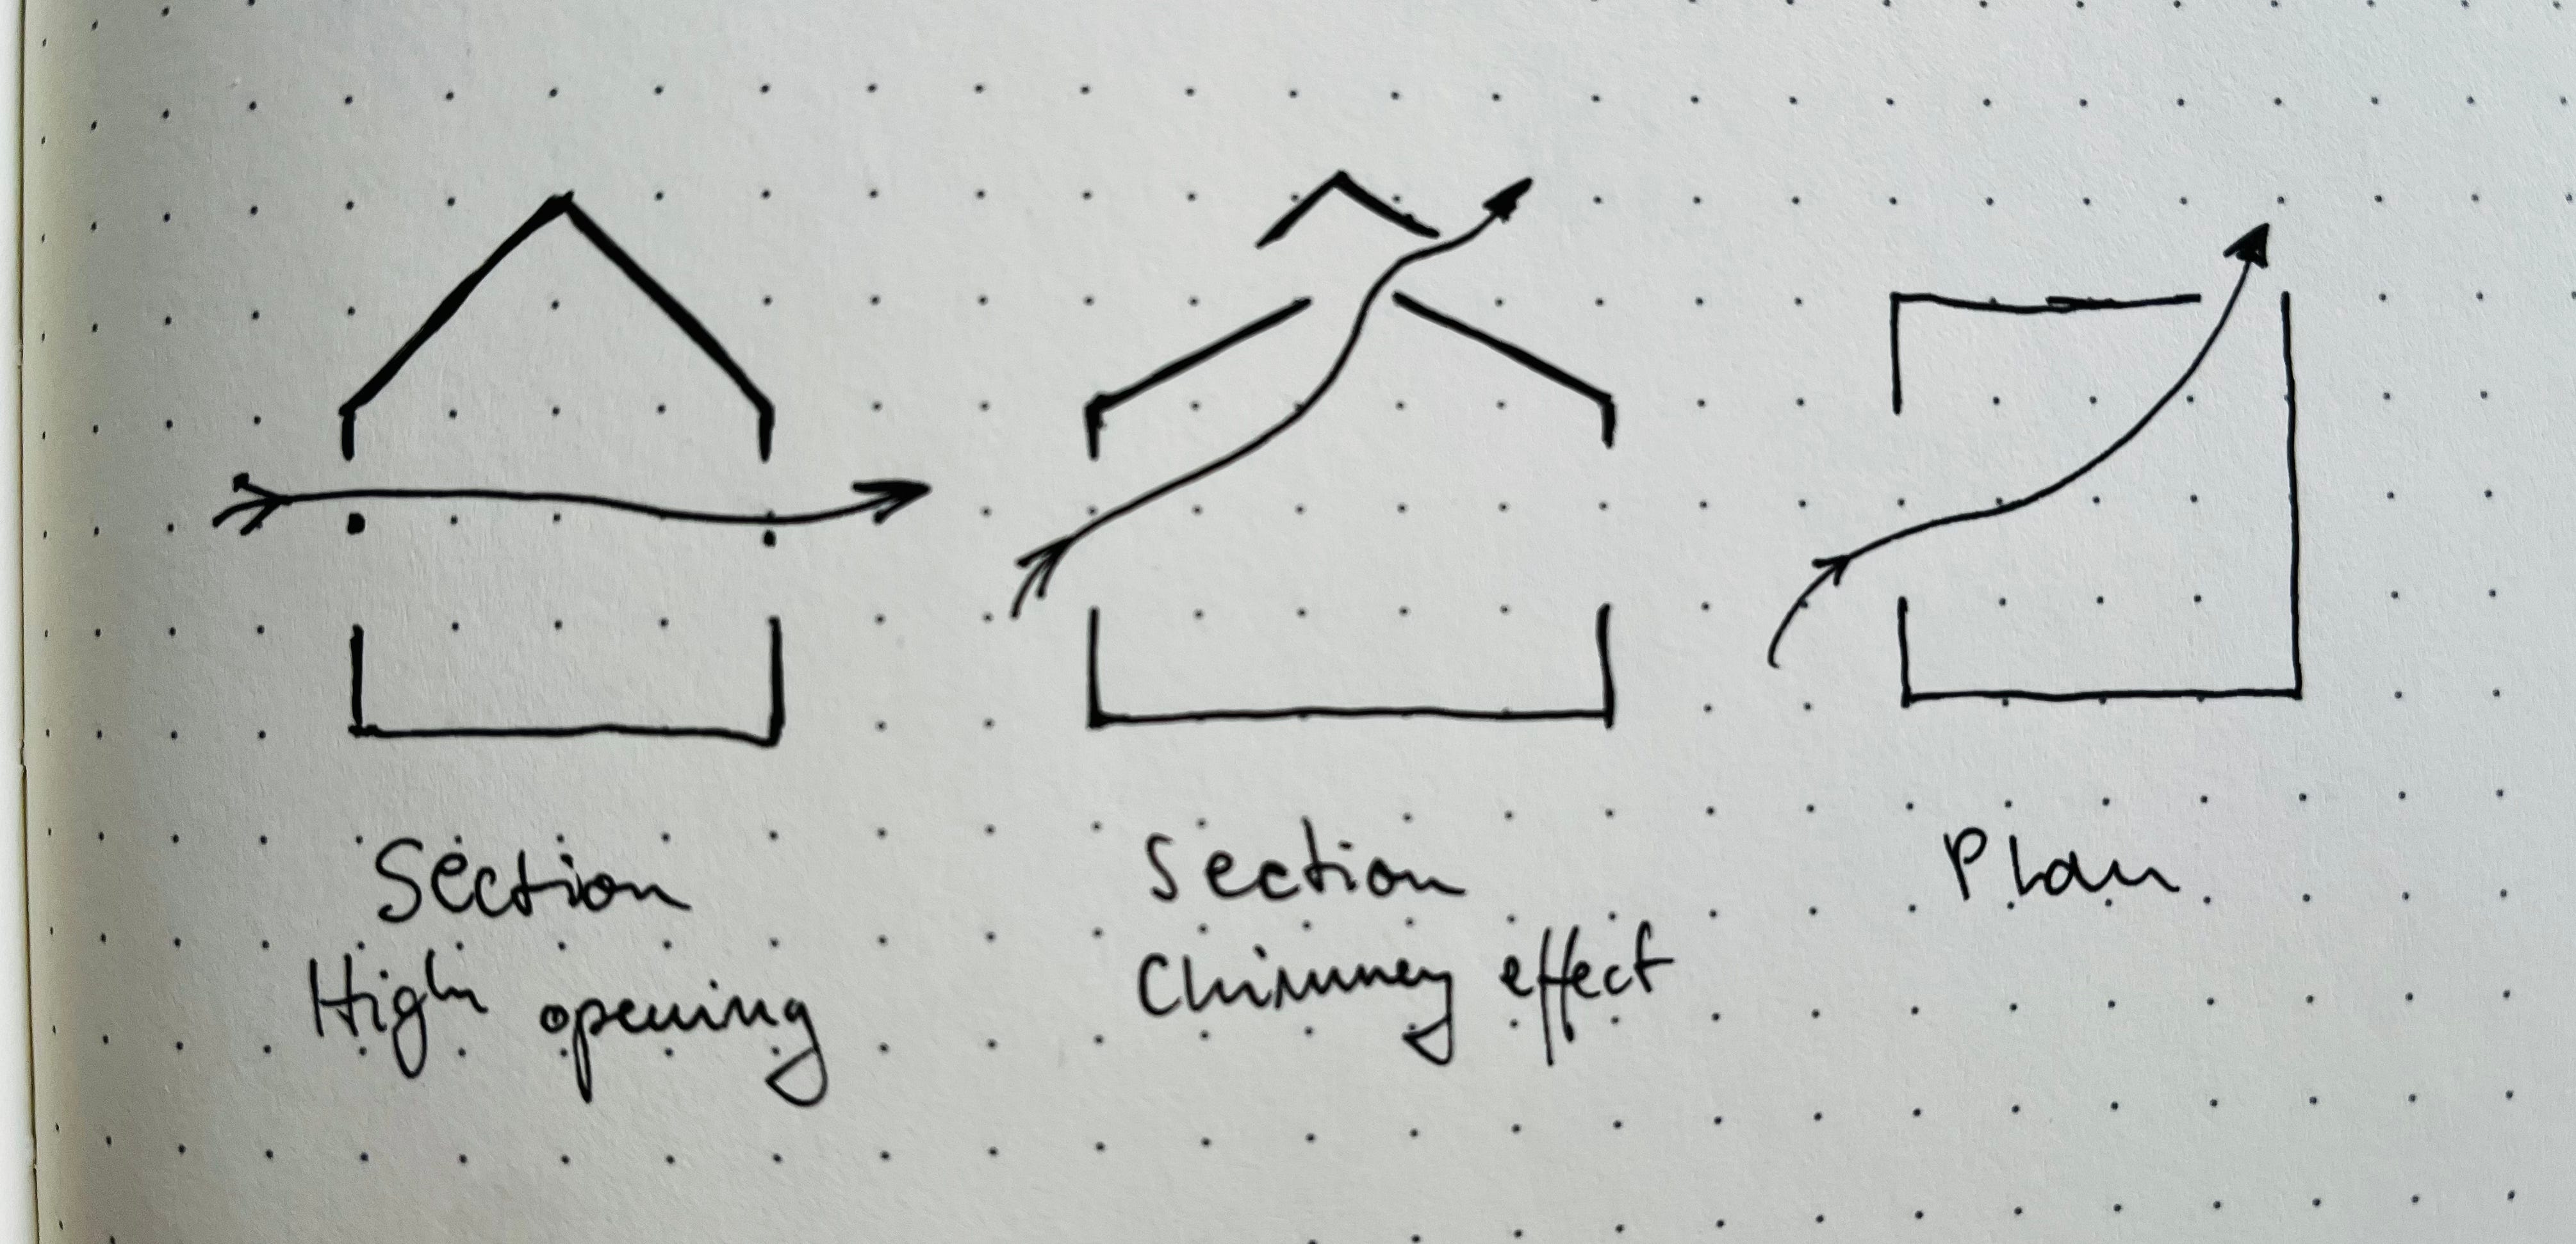 Section
High opening
Section
Chimney effect
Plan